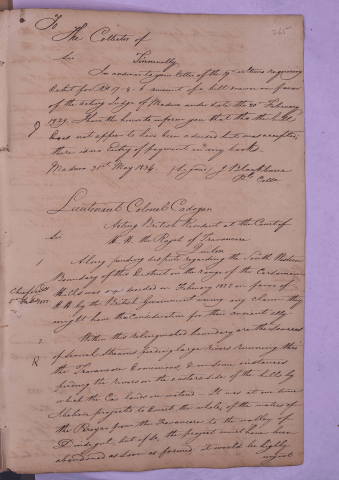 265
To
The Collector of
Tinnevelly
Sir
In answer to your letter of the 9th instant requiring
Debit for Rs 17.8.6 amount of a bill drawn in favor
of the acting Judge of Madura under date the 20th February
1829. I have the honor to inform you that tho the bill
does not appear to have been advised but was accepted
there is no Entry of payment in my books.
Madura 30th May 1834 (Signed) J Blackburne
Pl. Collr
Lieutenant Colonel Cadogan
Acting British Resident at the Court of
H. H. the Rajah of Travancore
Sir
Quilon
A long pending dispute regarding the South Western
Boundary of this District on the range of the Cardamom
Hills was decided in February 1822 in favor of
H.H. by the British Government waving any Claim they
might have in Consideration for their ancient ally
Within this relinquished boundary are the sources
of several Streams feeding large rivers running thro
the Travancore Dominions, & in some instances
feeding the rivers on the eastern side of the hills by
which the Car lands are watered - It was at one time
projected to divert the whole of the waters of
the from the Travancore to the valley of
Dindigul, but if so, the project must have been
abandoned as soon as formed it would be highly